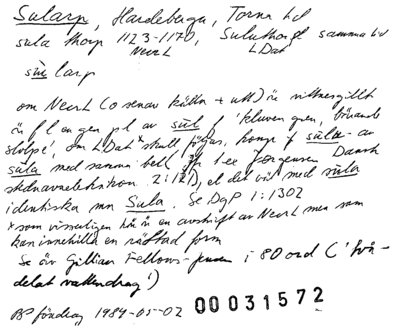 Sularp, Hardeberga, Torna hd
sula thorp 1123-1170, Suluthorp samma tid
NecrL LDat
sūlarp
om NecrL (o senav källn + utt) är vittnesgillt
är f l en gen pl av sūl f 'kluven gren, bärande
stolpe', om LDat skall följas, komp f sūla- av
sūla med samma bet (jfr t ex Jørgensen Dansk
stednavneleksikon 2:121), el det via med sūla
identiska mn Sula. Se DgP 1:1302
x som visserligen här är en avskrift av NecrL men som
kan innehålla en rättad form
Se äv Gillian Fellows-Jensen i 80 ord ('två-
delat vattendrag')
BP föredrag 1984-05-02 00031572